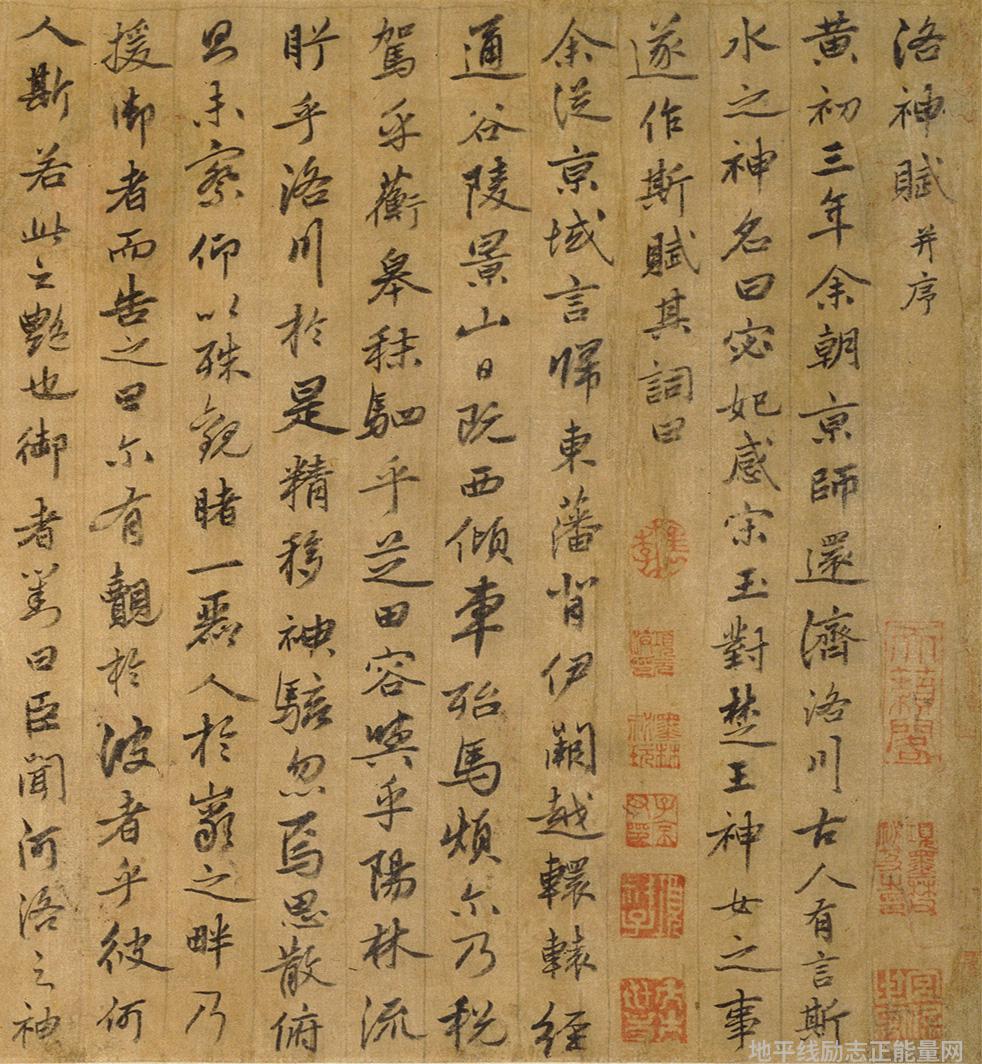 洛神賦 并序
黄初三年余朝亰師還濟洛川古人有言斯
水之神名曰宓妃感宋玉對楚王神女之事
遂作斯賦其詞曰
余從亰域言歸東藩背伊闕越轘轅經
通谷陵景山日既西傾車殆馬煩尒乃税
駕乎蘅皋秣駟乎芝田容與乎陽林流
眄乎洛川於是精移神駭忽焉思散俯
則未察仰以殊觀睹一麗人於巖之畔乃
援御者而告之曰尒有覿於彼者乎彼何
人斯若此之艷也御者對曰臣聞河洛之神
天籟閣
地平线励志正能量网